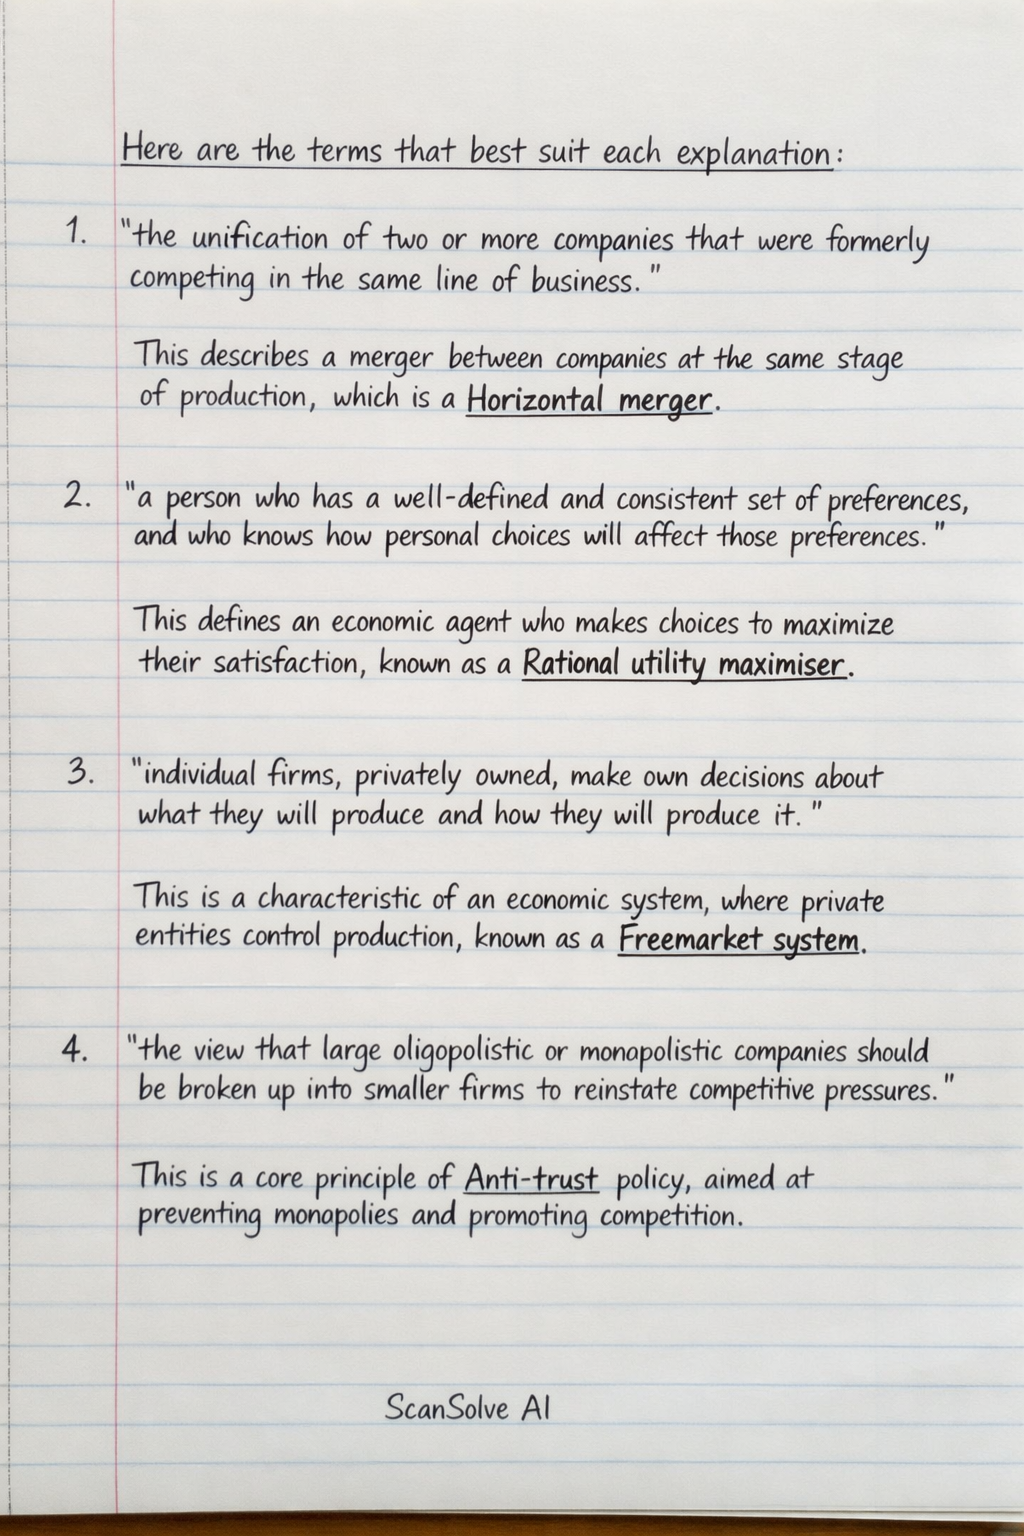 Here are the terms that best suit each explanation:
1. "the unification of two or more companies that were formerly
competing in the same line of business."
This describes a merger between companies at the same stage
of production, which is a Horizontal merger.
2. "a person who has a well-defined and consistent set of preferences,
and who knows how personal choices will affect those preferences."
This defines an economic agent who makes choices to maximize
their satisfaction, known as a Rational utility maximiser.
3. "individual firms, privately owned, make own decisions about
what they will produce and how they will produce it."
This is a characteristic of an economic system, where private
entities control production, known as a Freemarket system.
4. "the view that large oligopolistic or monapolistic companies should
be broken up into smaller firms to reinstate competitive pressures."
This is a core principle of Anti-trust policy, aimed at
preventing monapolies and promoting competition.
ScanSolve AI